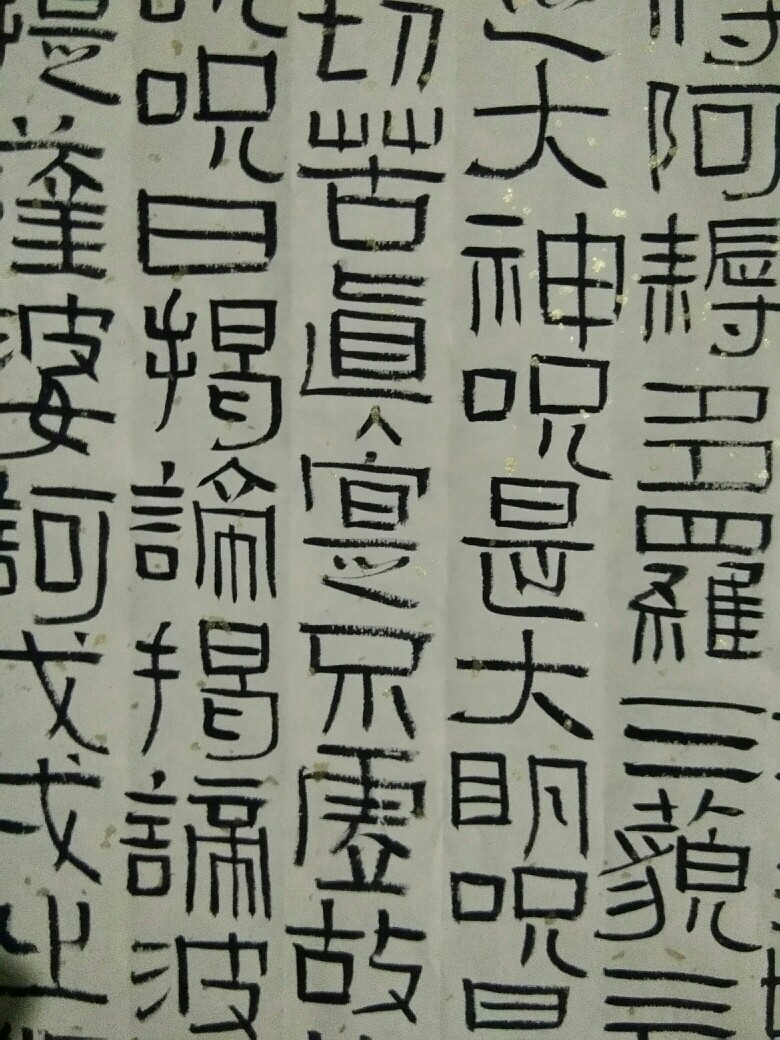 得阿耨多羅三藐三
是大神呪是大明呪是
切苦眞實不虛故
說呪曰揭諦揭諦波
提薩婆訶戊戌